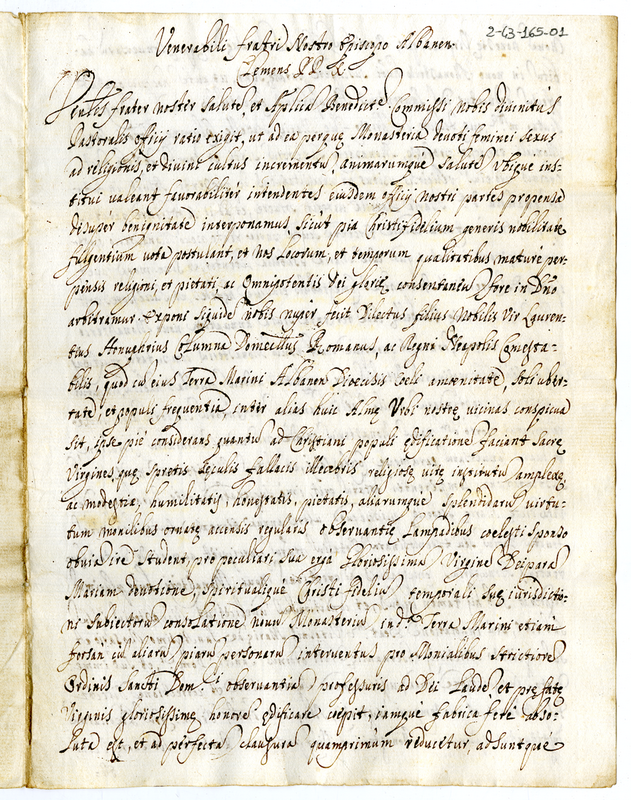 2-63-165-01
Venerabili fratri Nostro Episcopo Albanen.
Clemens PP. X.
Venlis frater noster salutẽ, et Aplicã Benedictẽ. Commissi nobis divinitus
Pastoralis officij ratio exigit, ut ad ea per quę Monasteria devoti feminei sexus
ad religionis, et divini cultus incrementũ, animarumque salutẽ ubique ins-
titui valeant favorabiliter intendentes eiusdem officij nostri partes propensa
desuper benignitate interponamus, sicut pia Christifidelium generis nobilitate
fulgentium vota postulant, et nos locorum, et temporum qualitatibus mature per-
pensis religioni, et pietati, ac Omnipotentis Dei glorię consentaneũ fore in Dno
arbitramur. Exponi siquidẽ nobis nuper fecit Dilectus filius Nobilis Vir Lauren-
tius Honuphrius Columna Domicellus Romanus, ac Regni Neapolis Comesta-
bilis, quod cũ eius Terra Marini Albanen Dioecesis Coeli amoenitate, soli uber-
tate, et populi frequentia, inter alias huic Almę Urbi nostrę vicinas conspicua
sit, ipse piè considerans quantũ ad Christiani populi ędificationẽ faciant Sacrę
Virgines, quę spretis sęculi fallacis illecebris religiosę vitę institutũ amplexę
ac modestię, humilitatis, honestatis, pietatis, aliarumque splendidarũ virtu-
tum monilibus ornatę accensis regularis observantię lampadibus coelesti sponso
obviã ire student, pro peculiari sua erga Gloriosissimã Virginẽ Deiparã
Mariam devotione, spiritualique Christifideliũ temporali suę iurisdictio-
ni subiectorũ consolatione novũ Monasteriũ in dᵃ Terra Marini etiam
forsan cũ aliarũ piarũ personarũ interventu pro Monialibus strictiorẽ
Ordinis Sancti Dom.ⁱ observantiã professuris ad Dei laudẽ et pręfatę
Virginis gloriosissimę honorẽ ędificare coepit, iamque fabrica ferè abso-
luta est, et ad perfectã clausurã quamprimum reducetur, adsuntque